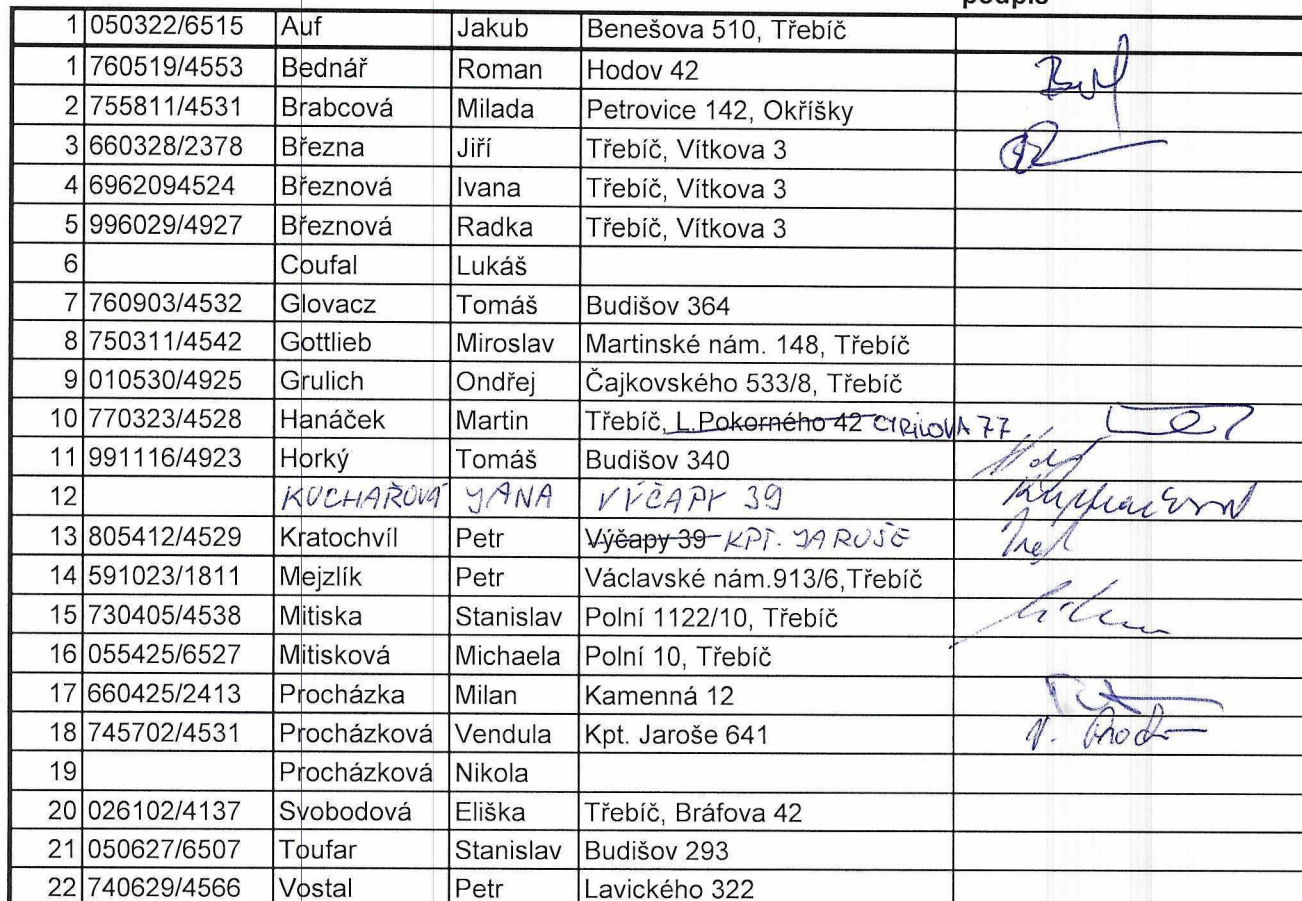 podpis
1 050322/6515 Auf Jakub Benešova 510, Třebíč
1 760519/4553 Bednář Roman Hodov 42
2 755811/4531 Brabcová Milada Petrovice 142, Okříšky
3 660328/2378 Března Jiří Třebíč, Vítkova 3
4 6962094524 Březnová Ivana Třebíč, Vítkova 3
5 996029/4927 Březnová Radka Třebíč, Vítkova 3
6 Coufal Lukáš
7 760903/4532 Glovacz Tomáš Budišov 364
8 750311/4542 Gottlieb Miroslav Martinské nám. 148, Třebíč
9 010530/4925 Grulich Ondřej Čajkovského 533/8, Třebíč
10 770323/4528 Hanáček Martin Třebíč, L.Pokorného 42 CYRILOVA 77
11 991116/4923 Horký Tomáš Budišov 340
12 KUCHAŘOVÁ JANA VÝČAPY 39
13 805412/4529 Kratochvíl Petr Výčapy 39 KPT. JAROŠE
14 591023/1811 Mejzlík Petr Václavské nám.913/6,Třebíč
15 730405/4538 Mitiska Stanislav Polní 1122/10, Třebíč
16 055425/6527 Mitisková Michaela Polní 10, Třebíč
17 660425/2413 Procházka Milan Kamenná 12
18 745702/4531 Procházková Vendula Kpt. Jaroše 641
19 Procházková Nikola
20 026102/4137 Svobodová Eliška Třebíč, Bráfova 42
21 050627/6507 Toufar Stanislav Budišov 293
22 740629/4566 Vostal Petr Lavického 322